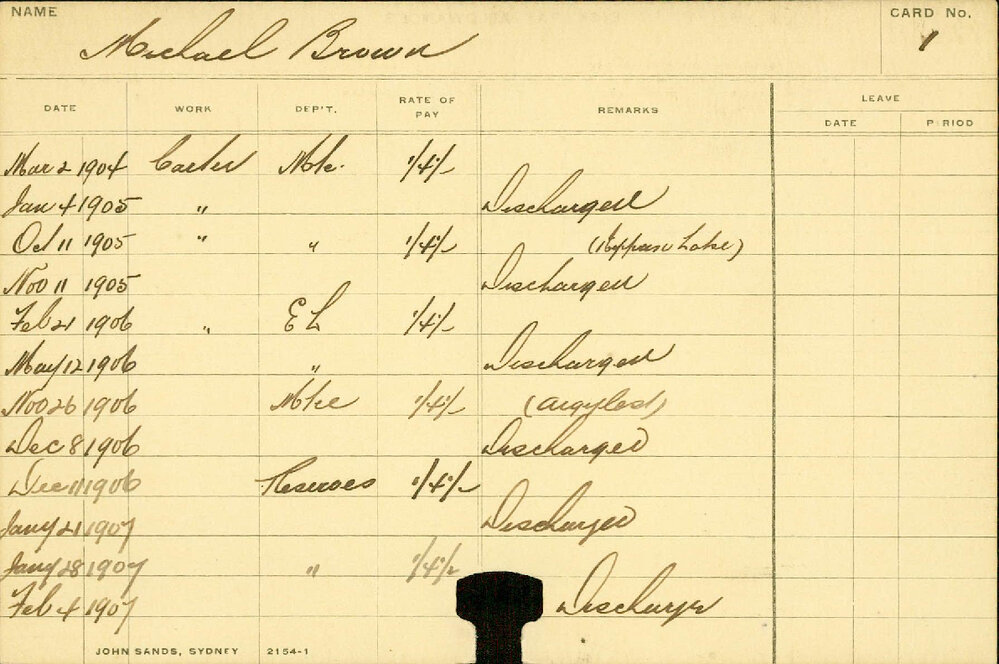 NAME CARD No.
Michael Brown 1
DATE WORK DEP'T. RATE OF PAY REMARKS LEAVE
DATE PERIOD
Mar 2 1904 Carter Mtce. 1/4/-
Jan 4 1905 " Discharged
Oct 11 1905 " " 1/4/-
Nov 11 1905 Discharged
Feb 21 1906 " E L 1/4/-
May 12 1906 " Discharged
Nov 26 1906 Mtce 1/4/- (Argyle St)
Dec 8 1906 Discharged
Dec 11 1906 Reserves 1/4/-
Jany 21 1907 Discharged
Jany 28 1907 " 1/4/-
Feb 4 1907 Discharge
JOHN SANDS, SYDNEY 2154-1